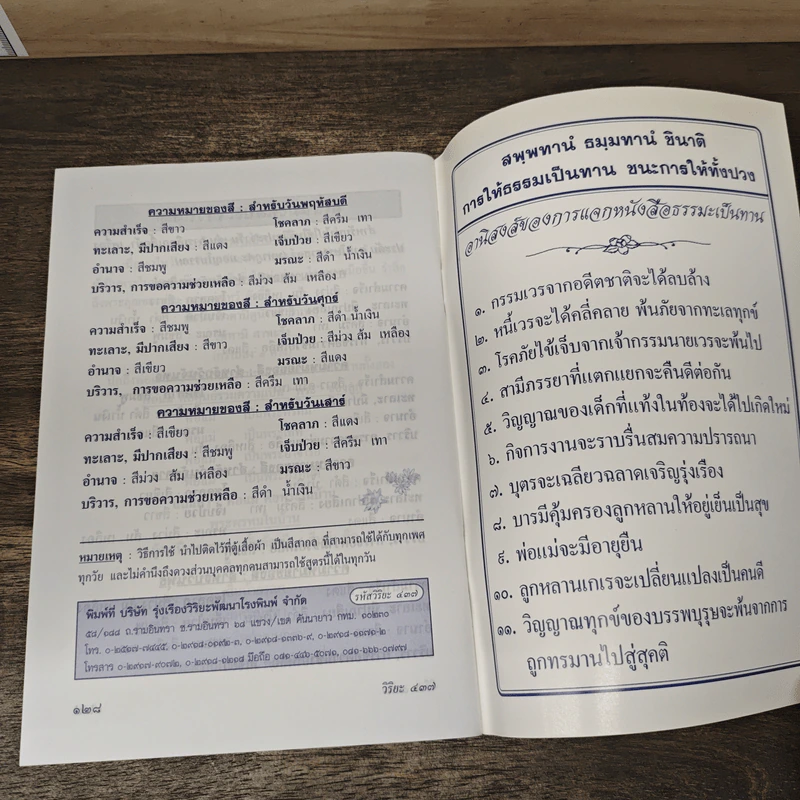 ความหมายของสี : สำหรับวันพฤหัสบดี
ความสำเร็จ : สีขาว โชคลาภ : สีครีม เทา
ทะเลาะ, มีปากเสียง : สีแดง เจ็บป่วย : สีเขียว
อำนาจ : สีชมพู มรณะ : สีดำ น้ำเงิน
บริวาร, การขอความช่วยเหลือ : สีม่วง ส้ม เหลือง
ความหมายของสี : สำหรับวันศุกร์
ความสำเร็จ : สีชมพู โชคลาภ : สีดำ น้ำเงิน
ทะเลาะ, มีปากเสียง : สีขาว เจ็บป่วย : สีม่วง ส้ม เหลือง
อำนาจ : สีเขียว มรณะ : สีแดง
บริวาร, การขอความช่วยเหลือ : สีครีม เทา
ความหมายของสี : สำหรับวันเสาร์
ความสำเร็จ : สีเขียว โชคลาภ : สีแดง
ทะเลาะ, มีปากเสียง : สีชมพู เจ็บป่วย : สีครีม เทา
อำนาจ : สีม่วง ส้ม เหลือง มรณะ : สีขาว
บริวาร, การขอความช่วยเหลือ : สีดำ น้ำเงิน
หมายเหตุ : วิธีการใช้ นำไปติดไว้ที่ตู้เสื้อผ้า เป็นสีสากล ที่สามารถใช้ได้กับทุกเพศ
ทุกวัย และไม่คำนึงถึงดวงส่วนบุคคลทุกคนสามารถใช้สูตรนี้ได้ในทุกวัน
พิมพ์ที่ บริษัท รุ่งเรืองวิริยะพัฒนาโรงพิมพ์ จำกัด รหัสวิริยะ ๔๓๗
๕๘/๑๘๘ ถ.รามอินทรา ซ.รามอินทรา ๖๘ แขวง/เขต คันนายาว กทม. ๑๐๒๓๐
โทร. ๐-๒๕๑๗-๗๔๔๕, ๐-๒๙๑๘-๐๑๙๒-๓, ๐-๒๙๑๘-๑๓๓๖-๙, ๐-๒๙๑๘-๑๑๗๖-๒
โทรสาร ๐-๒๙๑๗-๙๐๗๒, ๐-๒๙๑๘-๑๒๑๘ มือถือ ๐๘๑-๔๔๖-๕๐๗๑, ๐๘๑-๖๖๖-๐๗๙๗
วิริยะ ๔๓๗
๑๒๘
สพฺพทานํ ธมฺมทานํ ชินาติ
การให้ธรรมเป็นทาน ชนะการให้ทั้งปวง
อานิสงส์ของการแจกหนังสือธรรมะเป็นทาน
๑. กรรมเวรจากอดีตชาติจะได้ลบล้าง
๒. หนี้เวรจะได้คลี่คลาย พ้นภัยจากทะเลทุกข์
๓. โรคภัยไข้เจ็บจากเจ้ากรรมนายเวรจะพ้นไป
๔. สามีภรรยาที่แตกแยกจะคืนดีต่อกัน
๕. วิญญาณของเด็กที่แท้งในท้องจะได้ไปเกิดใหม่
๖. กิจการงานจะราบรื่นสมความปรารถนา
๗. บุตรจะเฉลียวฉลาดเจริญรุ่งเรือง
๘. บารมีคุ้มครองลูกหลานให้อยู่เย็นเป็นสุข
๙. พ่อแม่จะมีอายุยืน
๑๐. ลูกหลานเกเรจะเปลี่ยนแปลงเป็นคนดี
๑๑. วิญญาณทุกข์ของบรรพบุรุษจะพ้นจากการ
ถูกทรมานไปสู่สุคติ